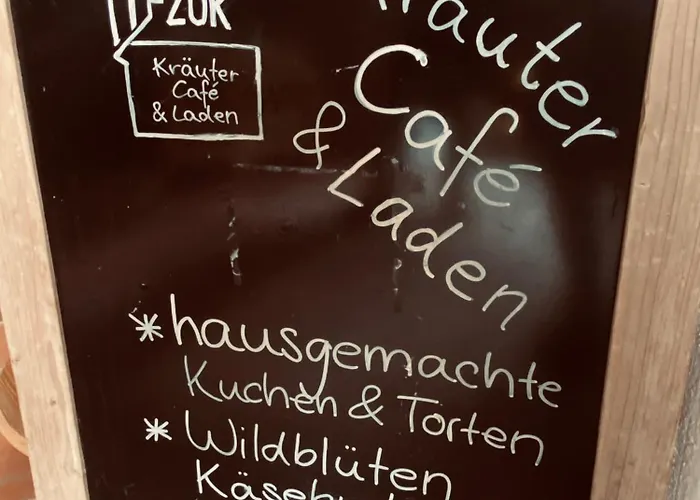 Kräuter
Café
& Laden
Kräuter
Café
& Laden
* hausgemachte
Kuchen & Torten
* Wildblüten